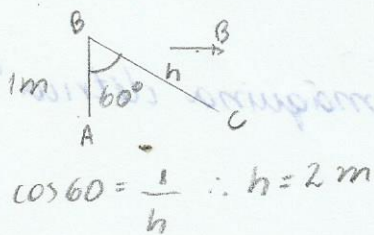 B
B
1m
60°
h
A
C
cos 60 = 1/h ∴ h = 2 m